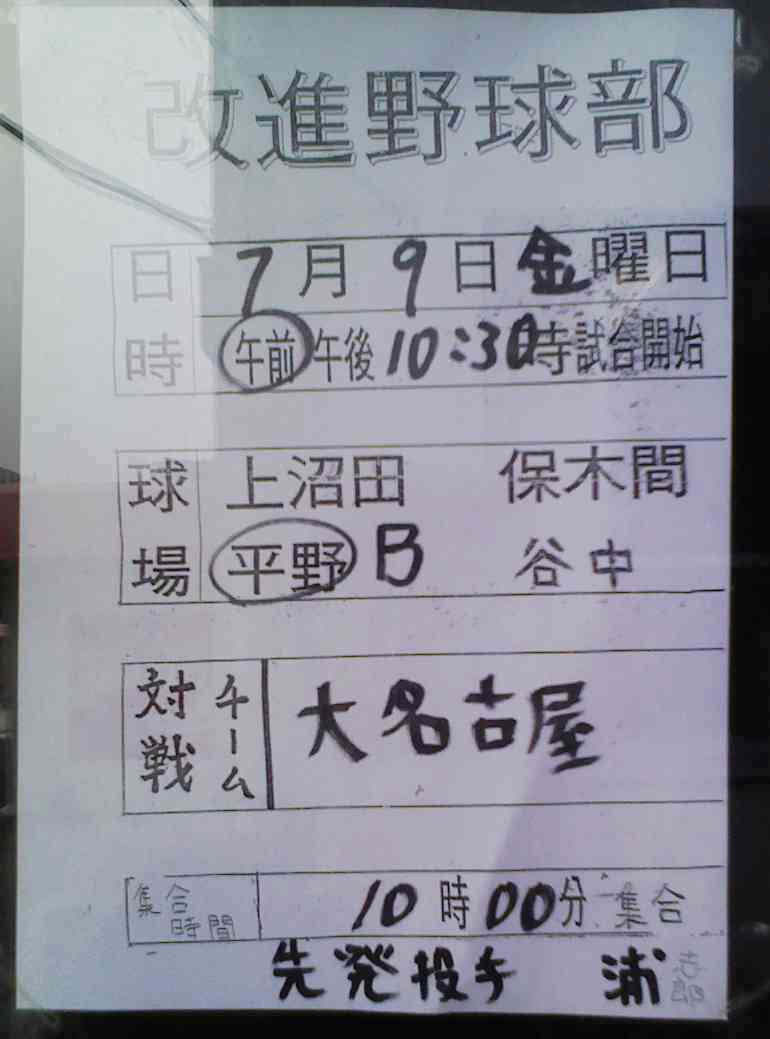 改進野球部
日時 7月9日金曜日
午前 午後 10:30時試合開始
球場 上沼田 保木間
平野 B 谷中
対戦チーム 大名古屋
集合時間 10時00分 集合
先発投手 浦